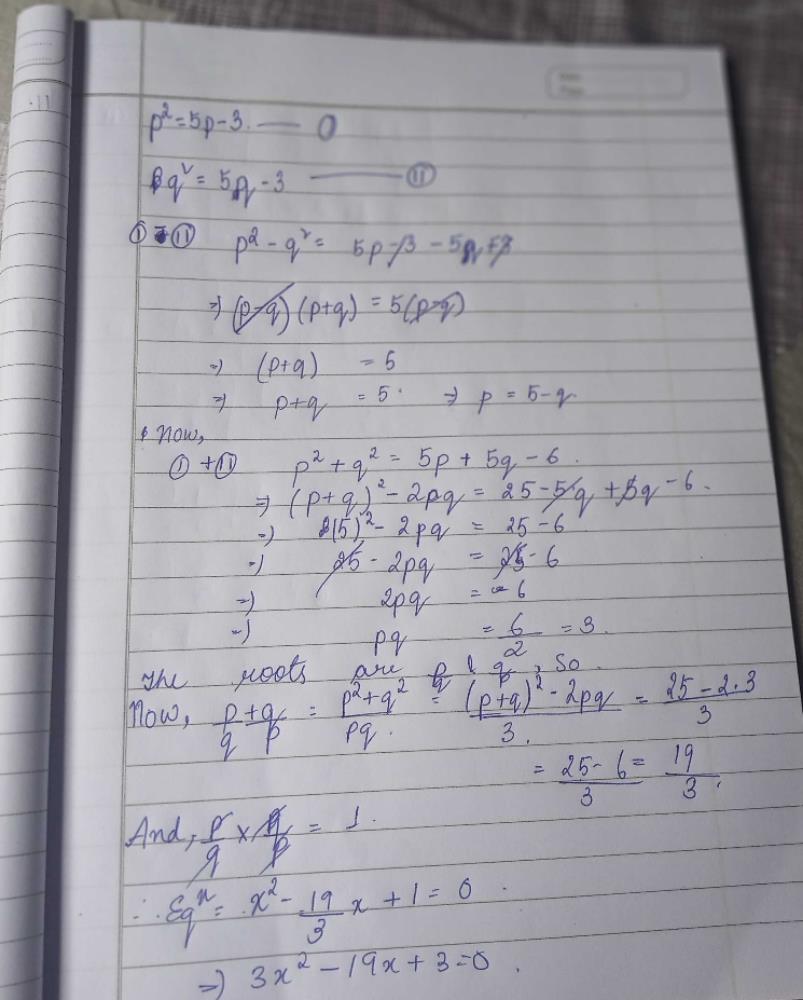 p² = 5p - 3. — ①
q² = 5q - 3 — ⑪
① - ⑪ p² - q² = 5p - 3 - 5q + 3
⇒ (p-q) (p+q) = 5(p-q)
⇒ (p+q) = 5
⇒ p+q = 5. ⇒ p = 5-q.
Now,
① + ⑪ p² + q² = 5p + 5q - 6.
⇒ (p+q)² - 2pq = 25 - 5q + 5q - 6.
⇒ (5)² - 2pq = 25 - 6
⇒ 25 - 2pq = 25 - 6
⇒ 2pq = 6
⇒ pq = 6/2 = 3.
The roots are p/q & q/p, So.
Now, p/q + q/p = (p²+q²)/pq. = ((p+q)² - 2pq)/3. = (25 - 2·3)/3
= (25 - 6)/3 = 19/3.
And, p/q × q/p = 1.
∴ Eqⁿ = x² - 19/3 x + 1 = 0.
⇒ 3x² - 19x + 3 = 0.